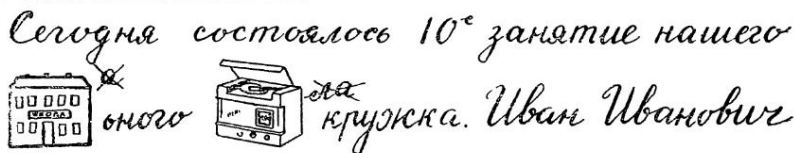 Сегодня состоялось 10е занятие нашего
ШКОЛА а оного ла кружка. Иван Иванович